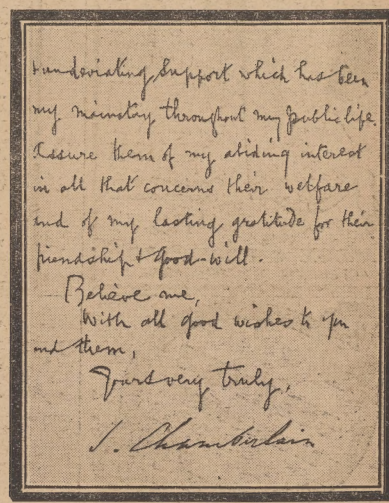 & undeviating support which has been
my mainstay throughout my public life.
Assure them of my abiding interest
in all that concerns their welfare
and of my lasting gratitude for their
friendship & good-will.
Believe me,
With all good wishes to you
and them,
Yours very truly,
J. Chamberlain